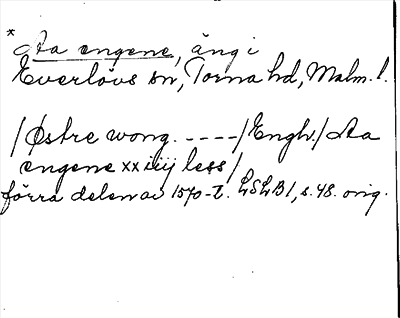 * Aa engene, äng i
Everlövs sn, Torna hd, Malm. l.
/Østre wong. ----/Engh./Aa
engene xx iiij less/
förra delen av 1570-t. LSLB1, s. 48. orig.